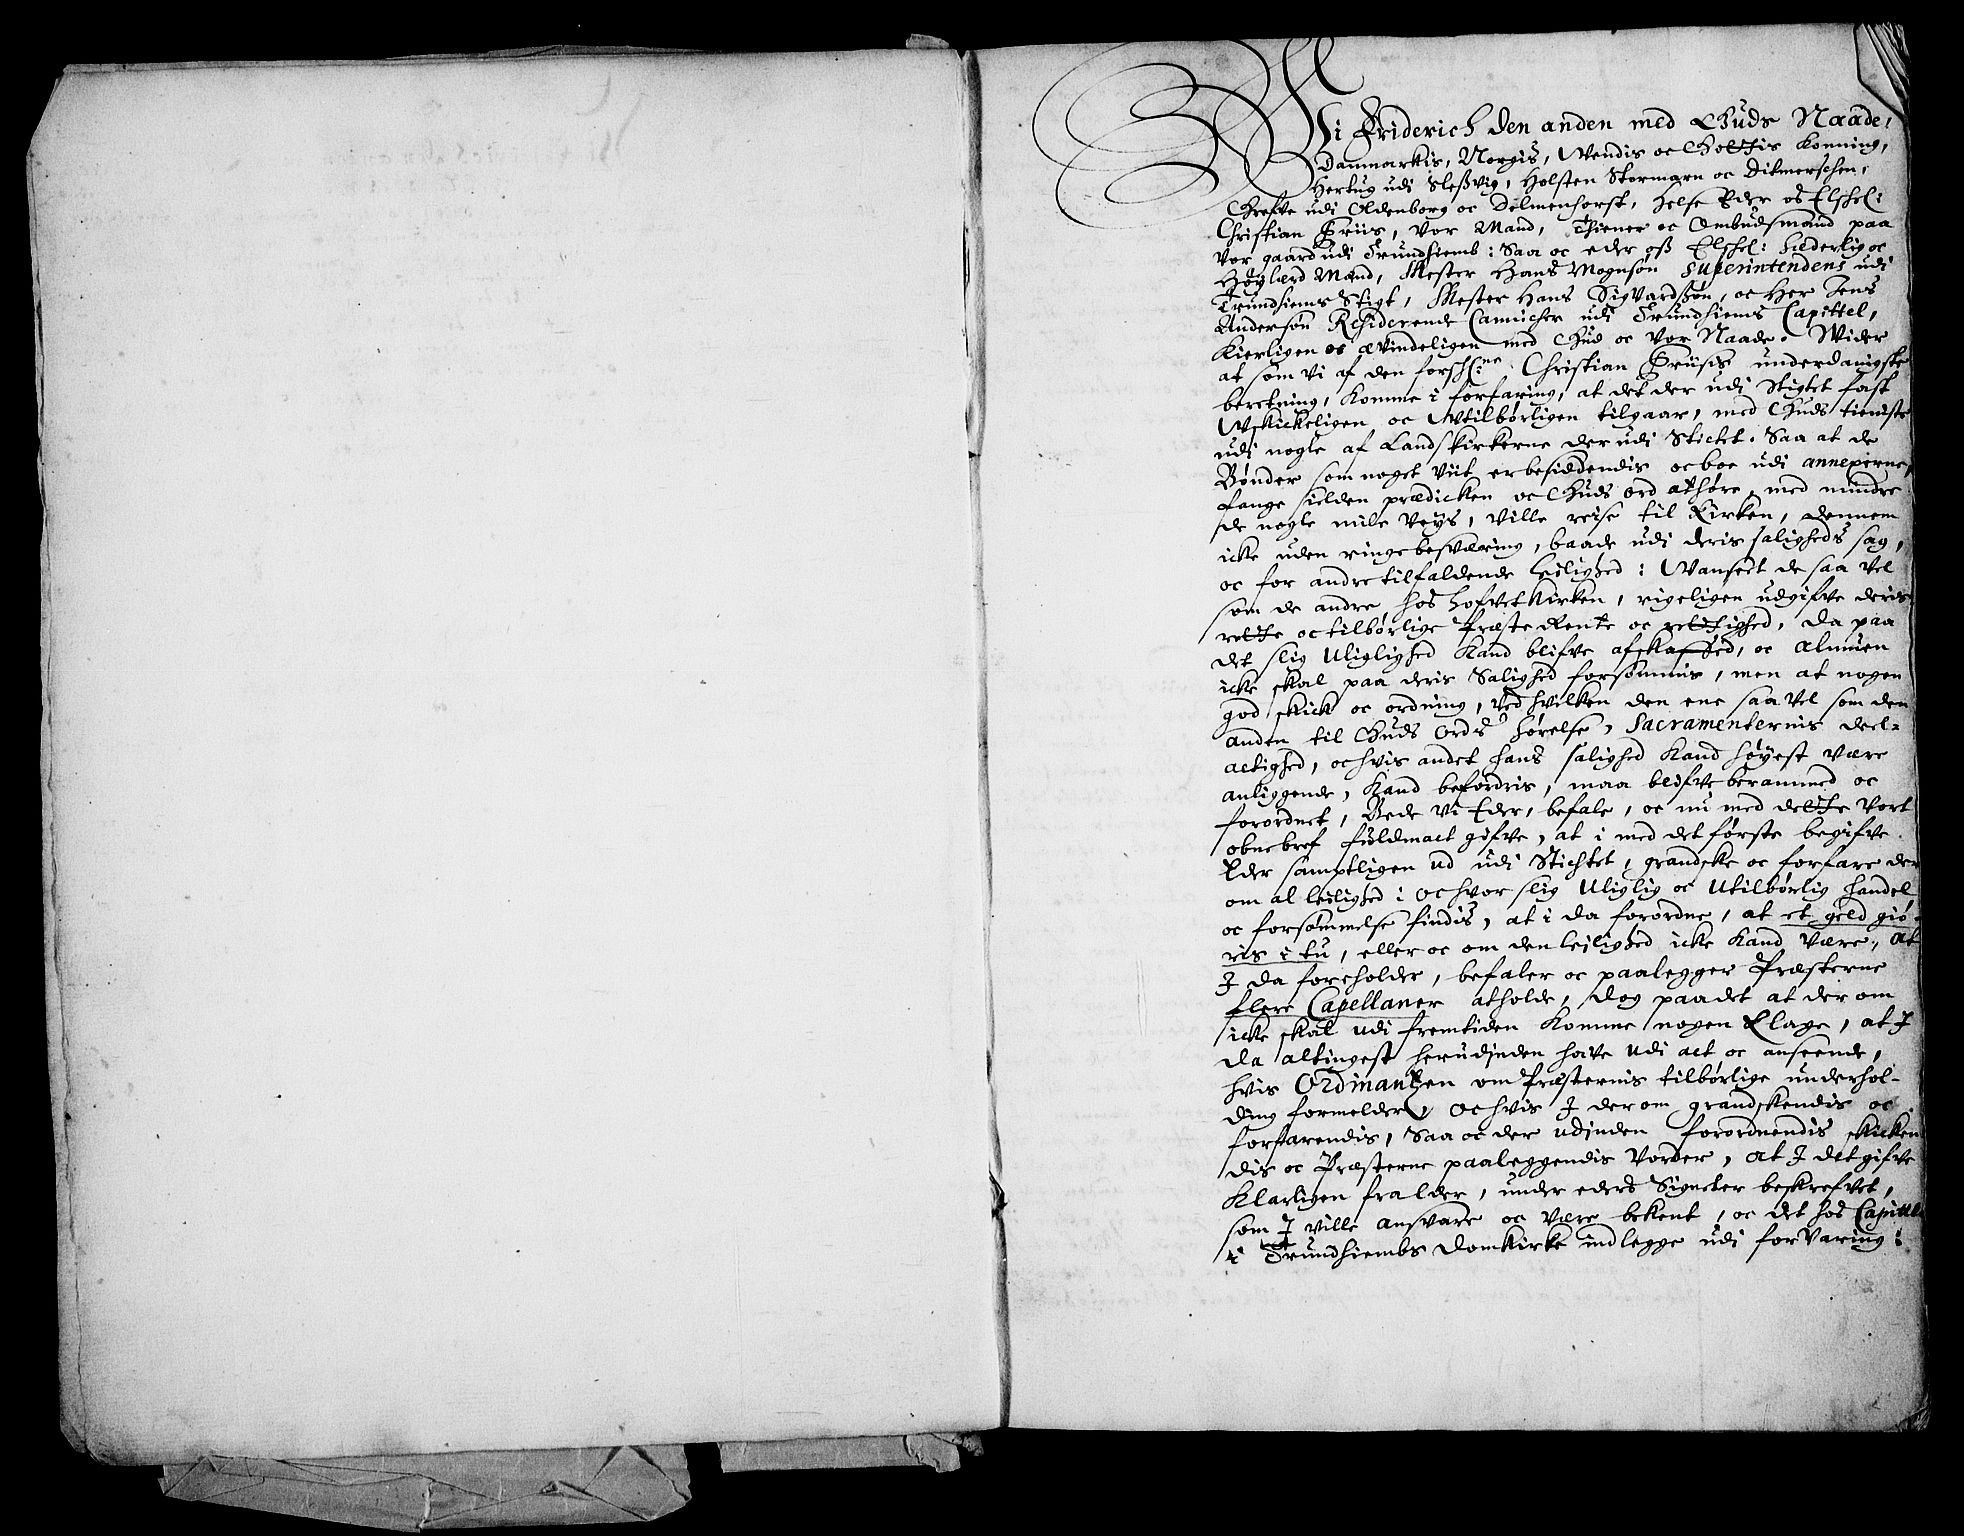 Vi Friderich den anden med Guds Naade,
Danmarkis, Norgis, Wendis oc Gottis Konning,
Hertug udi Sleßvig, Holsten Stormarn oc Ditmerschen,
Grefve udi Oldenborg oc Delmenhorst, helse Eder os Elskel:
Christian Friis, Vor Mand, Thiener oc Ombudsmand paa
Vor gaard udi Trundhiemb: Saa oc eder oß Elskel: Hæderlig oc
Høylærd Mand, Mester Hans Mognsøn Superintendens udi
Trundhiems Stigt, Mester Hans Sigvardsøn, oc Her Jens
Andersøn Residerende Cannicher udi Trundhiems Capittel,
Kierligen oc evindeligen med Gud oc Vor Naade. Wider
at som Vi af den forsch:ne Christian Friisis underdanigste
beretning, Komme i forfaring, at det der udi Stigtet fast
Wskickeligen oc Wtilbørligen tilgaar, med Guds tieniste
udi nogle af Landskirkerne der udi Stictet. Saa at de
Bønder som noget viit er besiddendis oc boe udi annexerne,
fange sielden prædicken oc Guds ord at høre, med mindre
de nogle mile Veys, ville reise til Kirken, dennem
icke uden ringe besværing, baade udi deris saligheds sag,
oc for andre tilfaldende leilighed: Wanseet de saa vel
som de andre hos hofvetkirken, rigeligen udgifve deris
rette oc tilbørlige Præste Rente oc rettighed, Da paa
det slig Uliglighed Kand blifve afskaffed, oc Almuen
icke skal paa deris Salighed forsømmis, men at nogen
god skick oc ordning, ved hvilken den ene saa vel som den
anden til Guds Ords hørelse, Sacramenternis deel-
actighed, oc hvis andet hans salighed Kand høyest være
anliggende, Kand befordris, maa blifve berammed oc
forordnet, Bede Vi Eder, befale, oc nu med dette Vort
obne bref fuldmact gifve, at i med det første begifve
Eder samptligen ud udi Stichtet, grandske oc forfare der
om al leilighed: oc hvor slig Uliglig oc Utilbørlig handel
oc forsømmelse findis, at i da forordne, at et geld giø-
ris i tu, eller oc om den leilighed icke Kand være, at
I da foreholder, befaler oc paalegger Præsterne
flere Capellaner at holde, dog paa det at der om
icke skal udi fremtiden Komme nogen Klage, at I
da altingest herudjnden have udi act oc anseende,
hvis Ordinantzen om Præsternis tilbørlige underhol-
ding formelder, oc hvis I der om grandskendis oc
forfarendis, Saa oc der udjnden forordnendis skicken
dis oc Præsterne paaleggendis vorder, at I det gifve
Klarligen fra Eder, under eders Signeter beskrefvet,
som I ville ansvare oc være bekent, oc det hos Capittel
i Trundhiembs Domkirke indlegge udi forvaring: